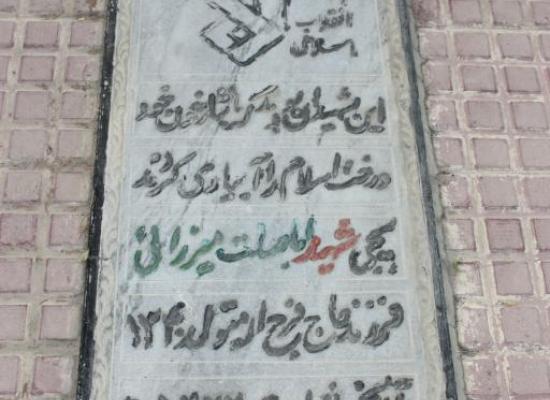 انقلاب
اسلامی
این شهیدان بودند که با نثار خون خود
درخت اسلام را آبیاری کردند
پیکی شهید اباصلت میرزائی
فرزند حاج فرج اله متولد ۱۳۴۰